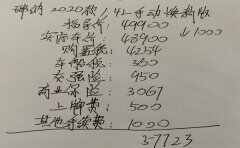 2020款 1.4L手动焕新版
指导价: 49900
实际车价: 48900 ↓1000
购置税: 4254
车船税: 360
交强险: 950
商业保险: 3067
上牌费: 500
其他手续费: 1000
57723